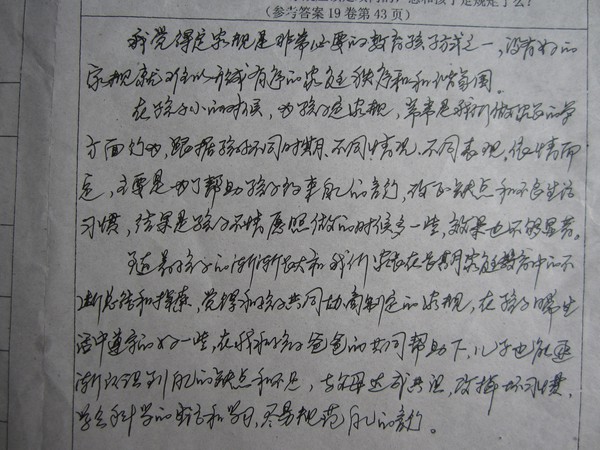 （参考答案19卷第43页）
我觉得定家规是非常必要的教育孩子方式之一，没有好的
家规就难以形成有序的家庭秩序和和谐氛围。
在孩子小的时候，为孩子定家规，常常是我们做家长的单
方面行为，跟据孩子不同时期、不同情况、不同表现，依情而
定，主要是为了帮助孩子约束自己的言行，改正缺点和不良生活
习惯，结果是孩子不情愿照做的时候多一些，效果也不够显著。
随着孩子的渐渐长大和我们家长在长期家庭教育中的不
断总结和探索，觉得和孩子共同协商制定的家规，在孩子日常生
活中遵守的好一些，在我和孩子爸爸的共同帮助下，儿子也能逐
渐认识到自己的缺点和不足，与父母达成共识，改掉坏习惯，
学会科学的生活和学习，尽量规范自己的言行。